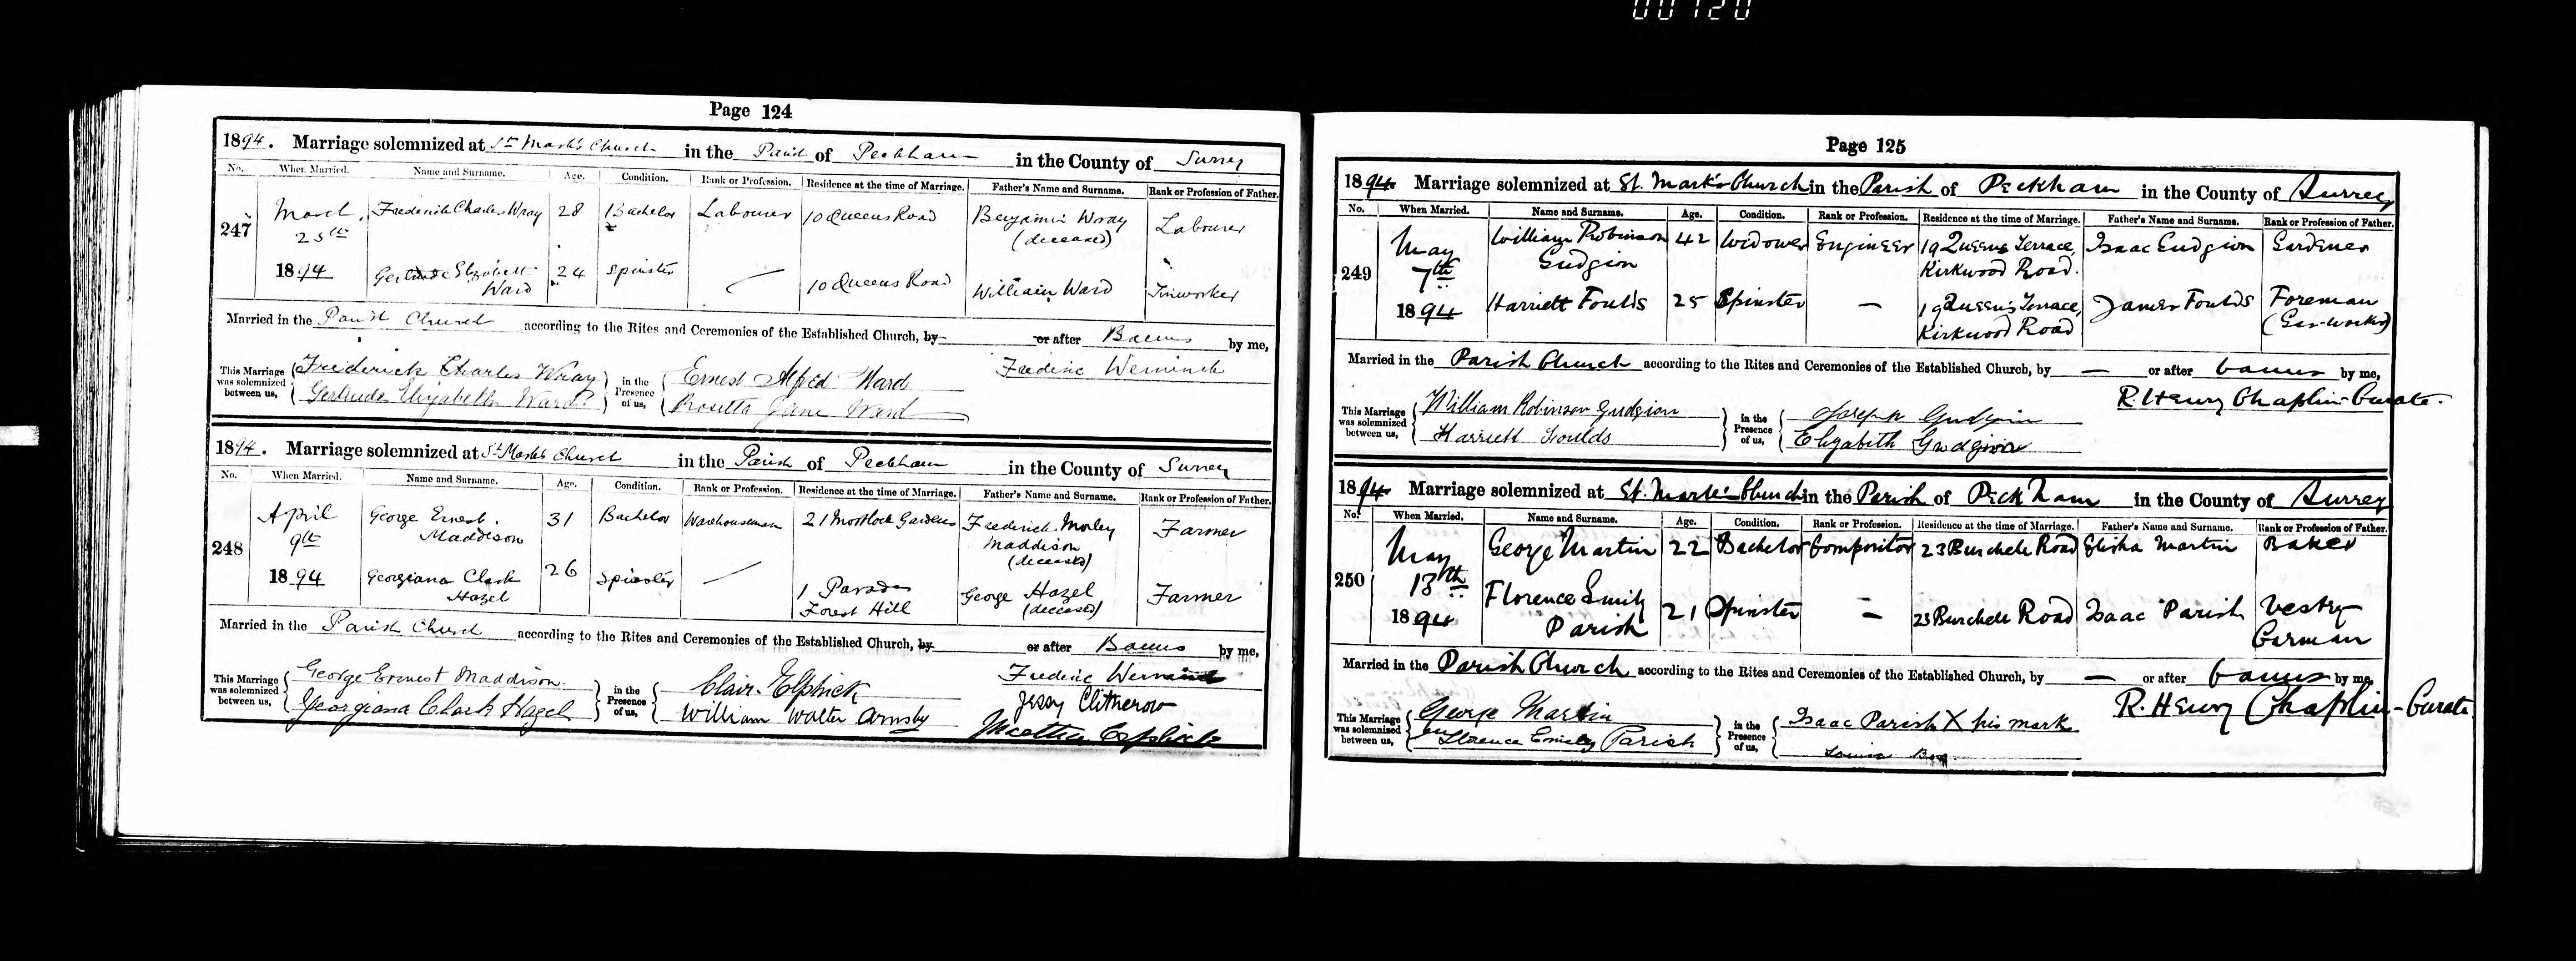 00120
Page 124
1894. Marriage solemnized at St Mark's Church in the Parish of Peckham in the County of Surrey
No. When Married. Name and Surname. Age. Condition. Rank or Profession. Residence at the time of Marriage. Father's Name and Surname. Rank or Profession of Father.
247 March 25th 1894 Frederick Charles Wray 28 Bachelor Labourer 10 Queens Road Benjamin Wray (deceased) Labourer
Gertrude Elizabeth Ward 24 Spinster — 10 Queens Road William Ward Tinworker
Married in the Parish Church according to the Rites and Ceremonies of the Established Church, by or after Banns by me,
This Marriage was solemnized between us, Frederick Charles Wray in the Presence of us, Ernest Alfred Ward Frederic Werninck
Gertrude Elizabeth Ward Rosetta Jane Ward
1894. Marriage solemnized at St Mark's Church in the Parish of Peckham in the County of Surrey
No. When Married. Name and Surname. Age. Condition. Rank or Profession. Residence at the time of Marriage. Father's Name and Surname. Rank or Profession of Father.
248 April 9th 1894 George Ernest Maddison 31 Bachelor Warehouseman 21 Mortlock Gardens Frederick Morley Maddison (deceased) Farmer
Georgiana Clark Hazel 26 Spinster — 1 Parade Forest Hill George Hazel (deceased) Farmer
Married in the Parish Church according to the Rites and Ceremonies of the Established Church, by or after Banns by me,
This Marriage was solemnized between us, George Ernest Maddison. in the Presence of us, Clair Elphick Frederic Werninck
Georgiana Clark Hazel William Walter Armsby Jessy Clitherow
Martha Elphick
Page 125
1894 Marriage solemnized at St. Mark's Church in the Parish of Peckham in the County of Surrey
No. When Married. Name and Surname. Age. Condition. Rank or Profession. Residence at the time of Marriage. Father's Name and Surname. Rank or Profession of Father.
249 May 7th 1894 William Robinson Gudgion 42 Widower Engineer 19 Queens Terrace, Kirkwood Road. Isaac Gudgion Gardener
Harriett Foulds 25 Spinster — 19 Queen's Terrace, Kirkwood Road James Foulds Foreman (Gas-works)
Married in the Parish Church according to the Rites and Ceremonies of the Established Church, by — or after banns by me,
R. Henry Chaplin-Curate.
This Marriage was solemnized between us, William Robinson Gudgion in the Presence of us, Joseph Gudgion
Harriett Foulds Elizabeth Gudgion
1894 Marriage solemnized at St. Mark's Church in the Parish of Peckham in the County of Surrey
No. When Married. Name and Surname. Age. Condition. Rank or Profession. Residence at the time of Marriage. Father's Name and Surname. Rank or Profession of Father.
250 May 13th 1894 George Martin 22 Bachelor Compositor 23 Burchell Road Elisha Martin Baker
Florence Emily Parish 21 Spinster — 23 Burchell Road Isaac Parish Vestry Carman
Married in the Parish Church according to the Rites and Ceremonies of the Established Church, by — or after banns by me,
R. Henry Chaplin-Curate
This Marriage was solemnized between us, George Martin in the Presence of us, Isaac Parish X his mark
Florence Emily Parish Louisa